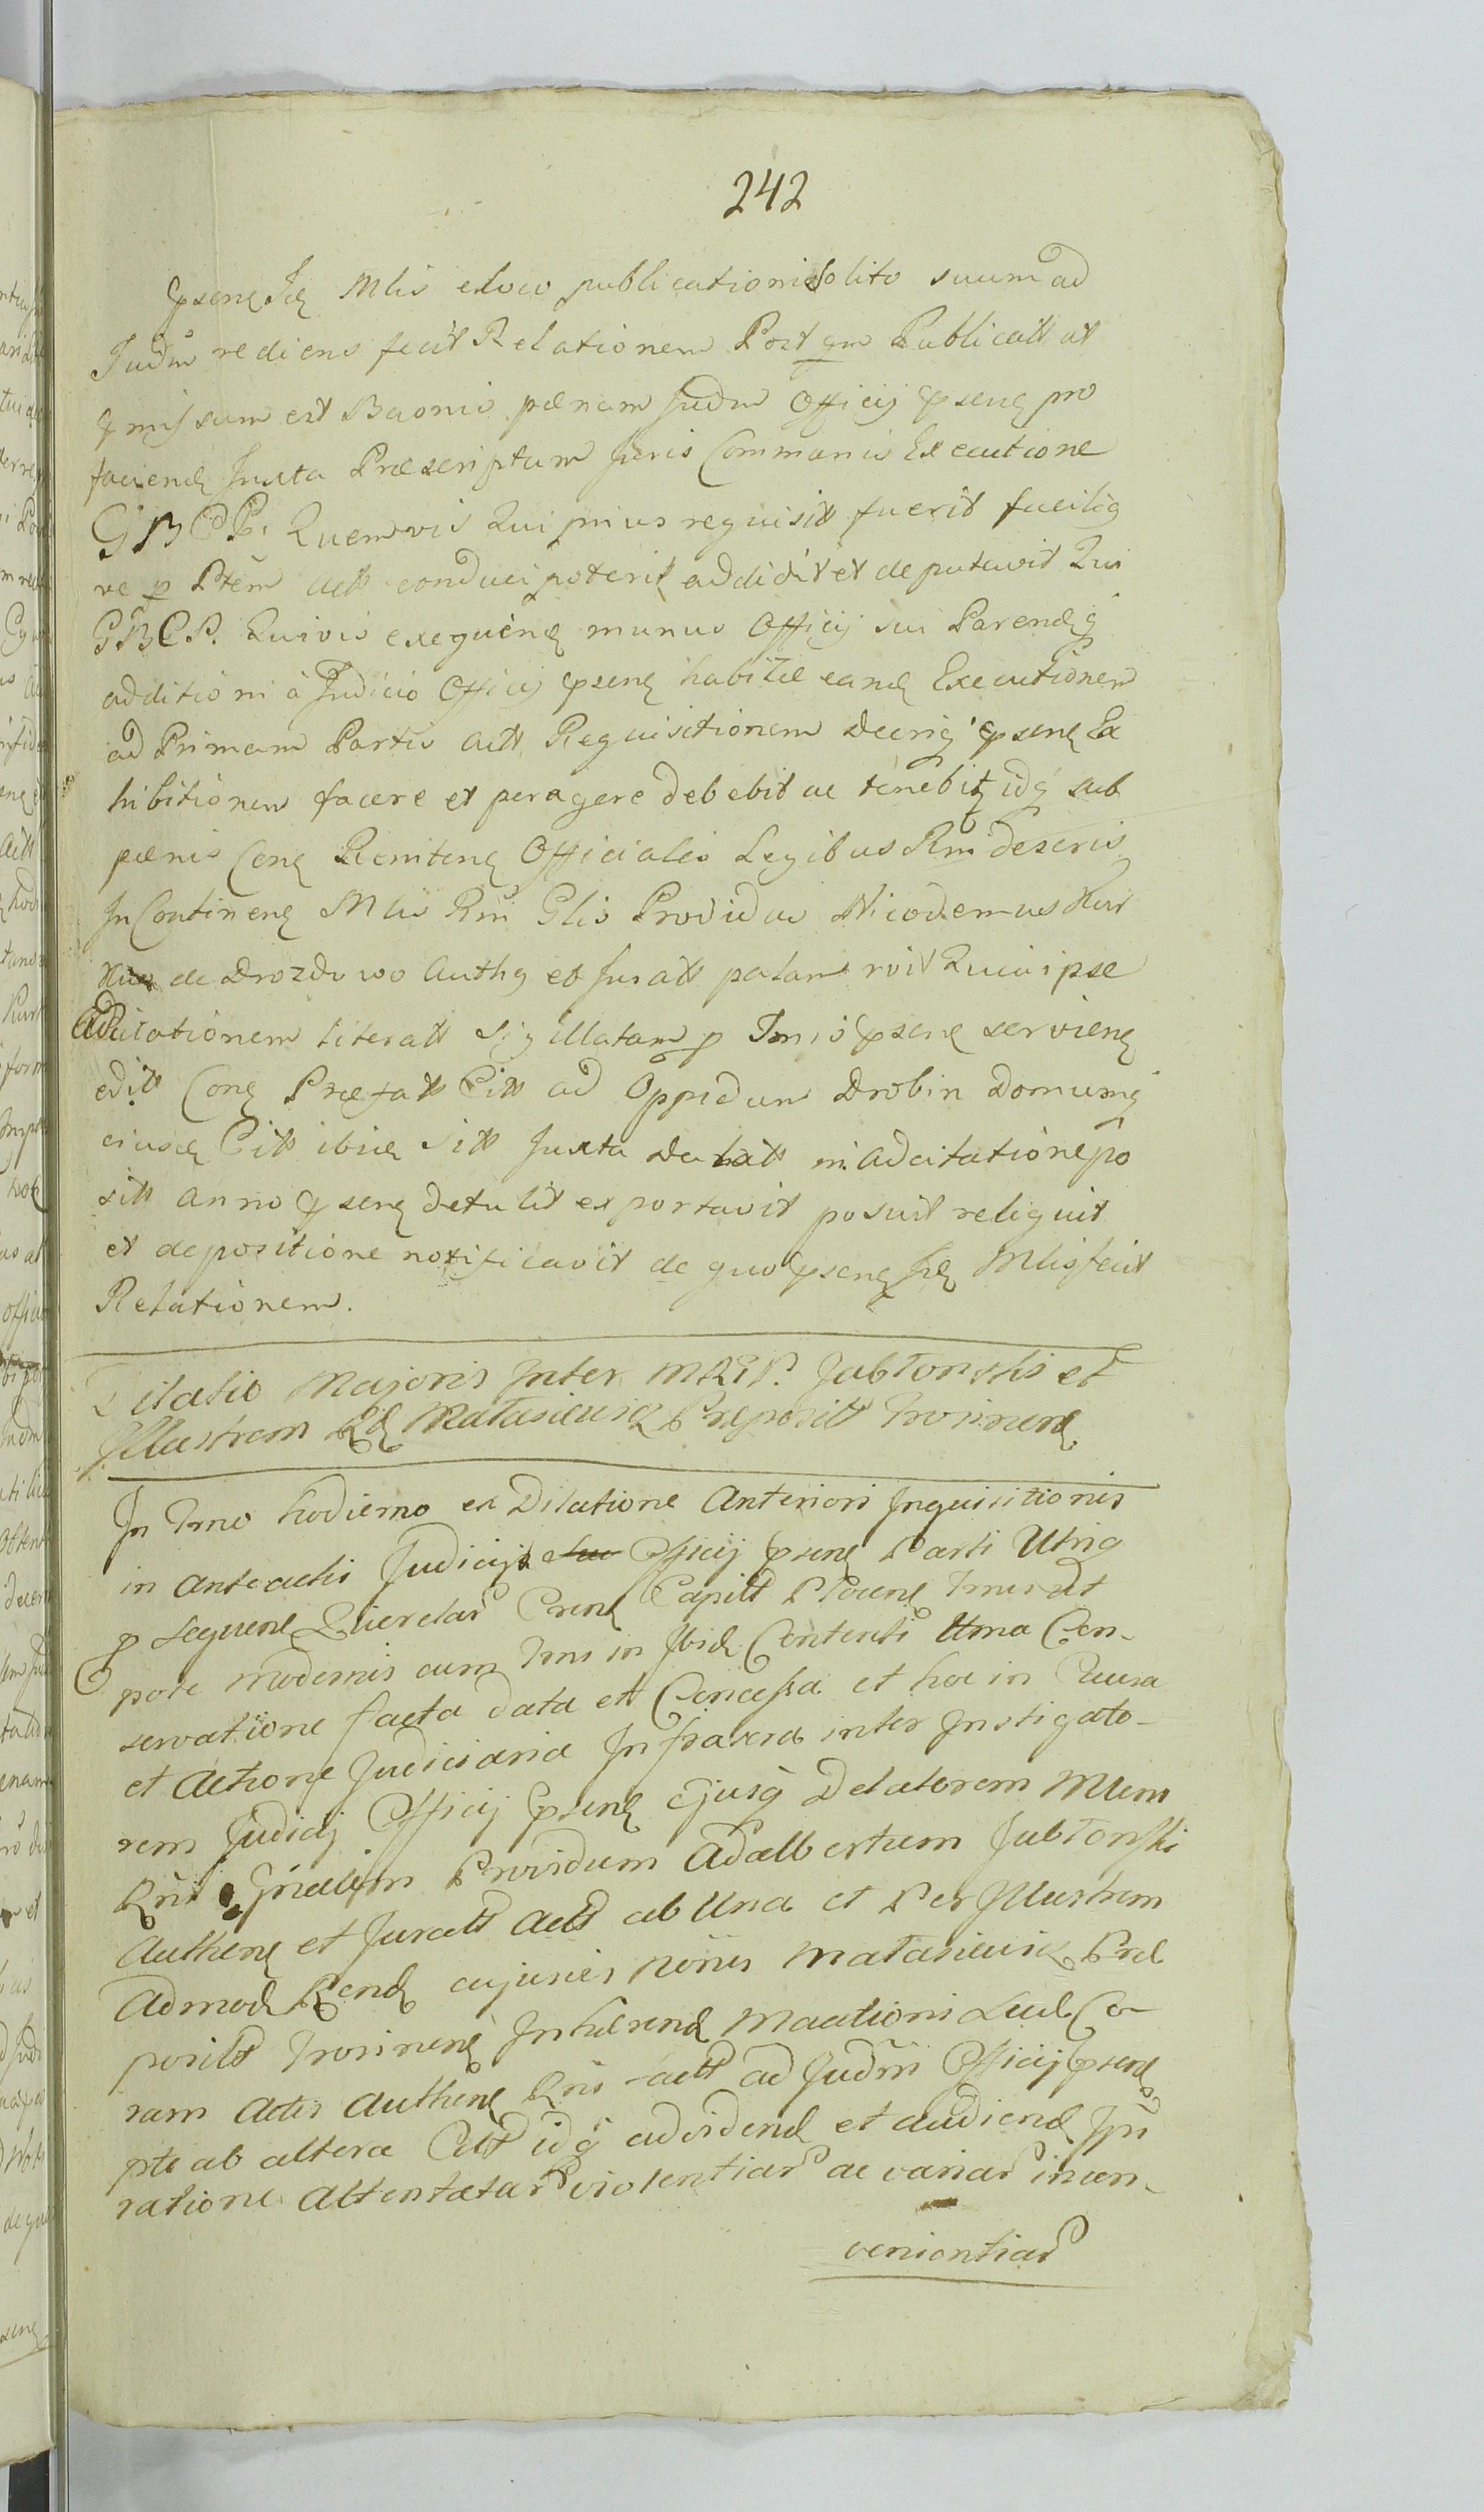 242
pseng Jcg Mlis eloco publicationi Solito suum ad
Judm rediens fecit Relationem Post qm Publicatt at
pmissum est Baonis pœnam Judm Officij pseng pro
faciendg Juxta Præscriptum Juris Communis Executione
GBCP. Quemvis Qui prius requisitt fuerit facilig
ve p Ptem actt conduci poterit addidit et deputavit Qui
GBCP. Quivis exequeng munus Officij sui Parendg
additioni à Judicio Officij pseng habitæ eandg Executionem
ad Primam Partis actt Requisitionem Decrig pseng Ex
hibitionem facere et peragere debebit ac tenebitz idq sub
pœnis Cong Reniteng Officiales Legibus Rni descris
In Contineng Mlis Rni Glis Providus Nicodemus Kur
de Drozdowo Authg et Juratt palam Quia ipse
Adcitationem literatt Sigillatam p Tmis pseng servieng
editt Cong Præfatt Citt ad Oppidum Drobin Domumq
eiusdg Citt ibidg Sitt Juxta Datatt in adcitatione po
sitt anno pseng detulit exportavit posuit reliquit
et depositione notificavit de quo pseng Jcg Mlis fecit
Relationem.
Dilatio Majoris Inter MRGP. Jabłonski et
Illustrem Rdg Małasiewicz Preposit Trosineng
In Tmo hodierno ex Dilatione Anteriori Inquisitionis
in anteactis Judicijs Officij pseng Parti Utriq
p sequeng Querelar Cseng Capitt Ploceng Tmis ut
pote modernis cum Tmi in Ibidg Contenti Uma Con-
servatione facta data et Concessa et hoc in Causa
et Actione Judiciaria Infrascra inter Instigato-
rem Judicij Officij pseng Ejusq Delatorem Mlem
Rni Gnalem Providum Adalbertum Jabłonski
Autheng et Juratt Actt ab Una et Per Illustrem
Admodg Rendg cujusvis nonis Małasiewicz Præ
positt Trosineng Inhærendg Maationi Lucl Co-
ram Actis Autheng Rni factt ad Judm Officij pseng
pte ab altera Citt idq advidendg et audiendg Jpn
ratione Attentatar violentiar ac variar incon-
venientiar